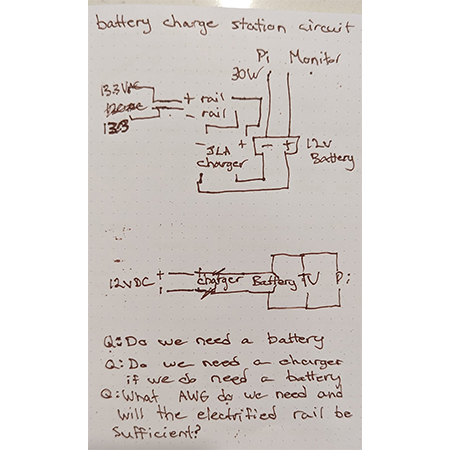 battery charge station circuit
Pi Monitor
30W
+ rail
- rail
- +
SLA
charger
- +
12V
Battery
12VDC + -
charger Battery TV Pi
Q: Do we need a battery
Q: Do we need a charger
if we do need a battery
Q: What AWG do we need and
will the electrified rail be
sufficient?